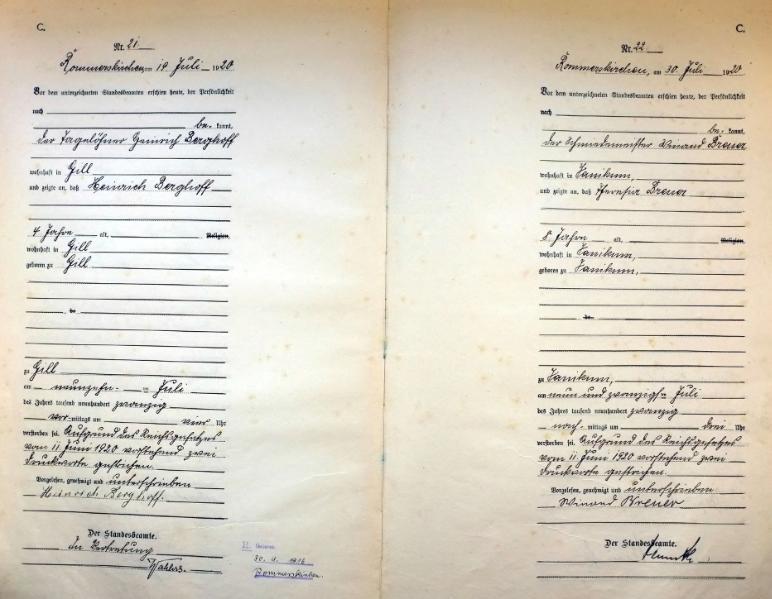 C.
Nr. 21
Rommerskirchen, am 19. Juli 1920
Vor dem unterzeichneten Standesbeamten erschien heute, der Persönlichkeit
nach
be- kannt,
der Tagelöhner Heinrich Berghoff
wohnhaft in Gill
und zeigte an, daß Heinrich Berghoff
4 Jahre alt, Religion,
wohnhaft in Gill
geboren zu Gill
zu Gill
am neunzehn- ten Juli
des Jahres tausend neunhundert zwanzig
vor- mittags um vier Uhr
verstorben sei. Aufgrund des Reichsgesetzes
vom 11. Juni 1920 vorstehend zwei
Druckworte gestrichen.
Vorgelesen, genehmigt und unterschrieben
Heinrich Berghoff.
Der Standesbeamte.
In Vertretung
Rommerskirchen.
C.
Nr. 22
Rommerskirchen, am 30. Juli 1920
Vor dem unterzeichneten Standesbeamten erschien heute, der Persönlichkeit
nach
be- kannt,
der Schmiedemeister Winand Breuer
wohnhaft in
und zeigte an, daß Theresia Breuer
8 Jahre alt, Religion,
wohnhaft in
geboren zu
zu
am neun und zwanzigsten Juli
des Jahres tausend neunhundert zwanzig
nach- mittags um drei Uhr
verstorben sei. Aufgrund des Reichsgesetzes
vom 11. Juni 1920 vorstehend zwei
Druckworte gestrichen.
Vorgelesen, genehmigt und unterschrieben
Winand Breuer
Der Standesbeamte.